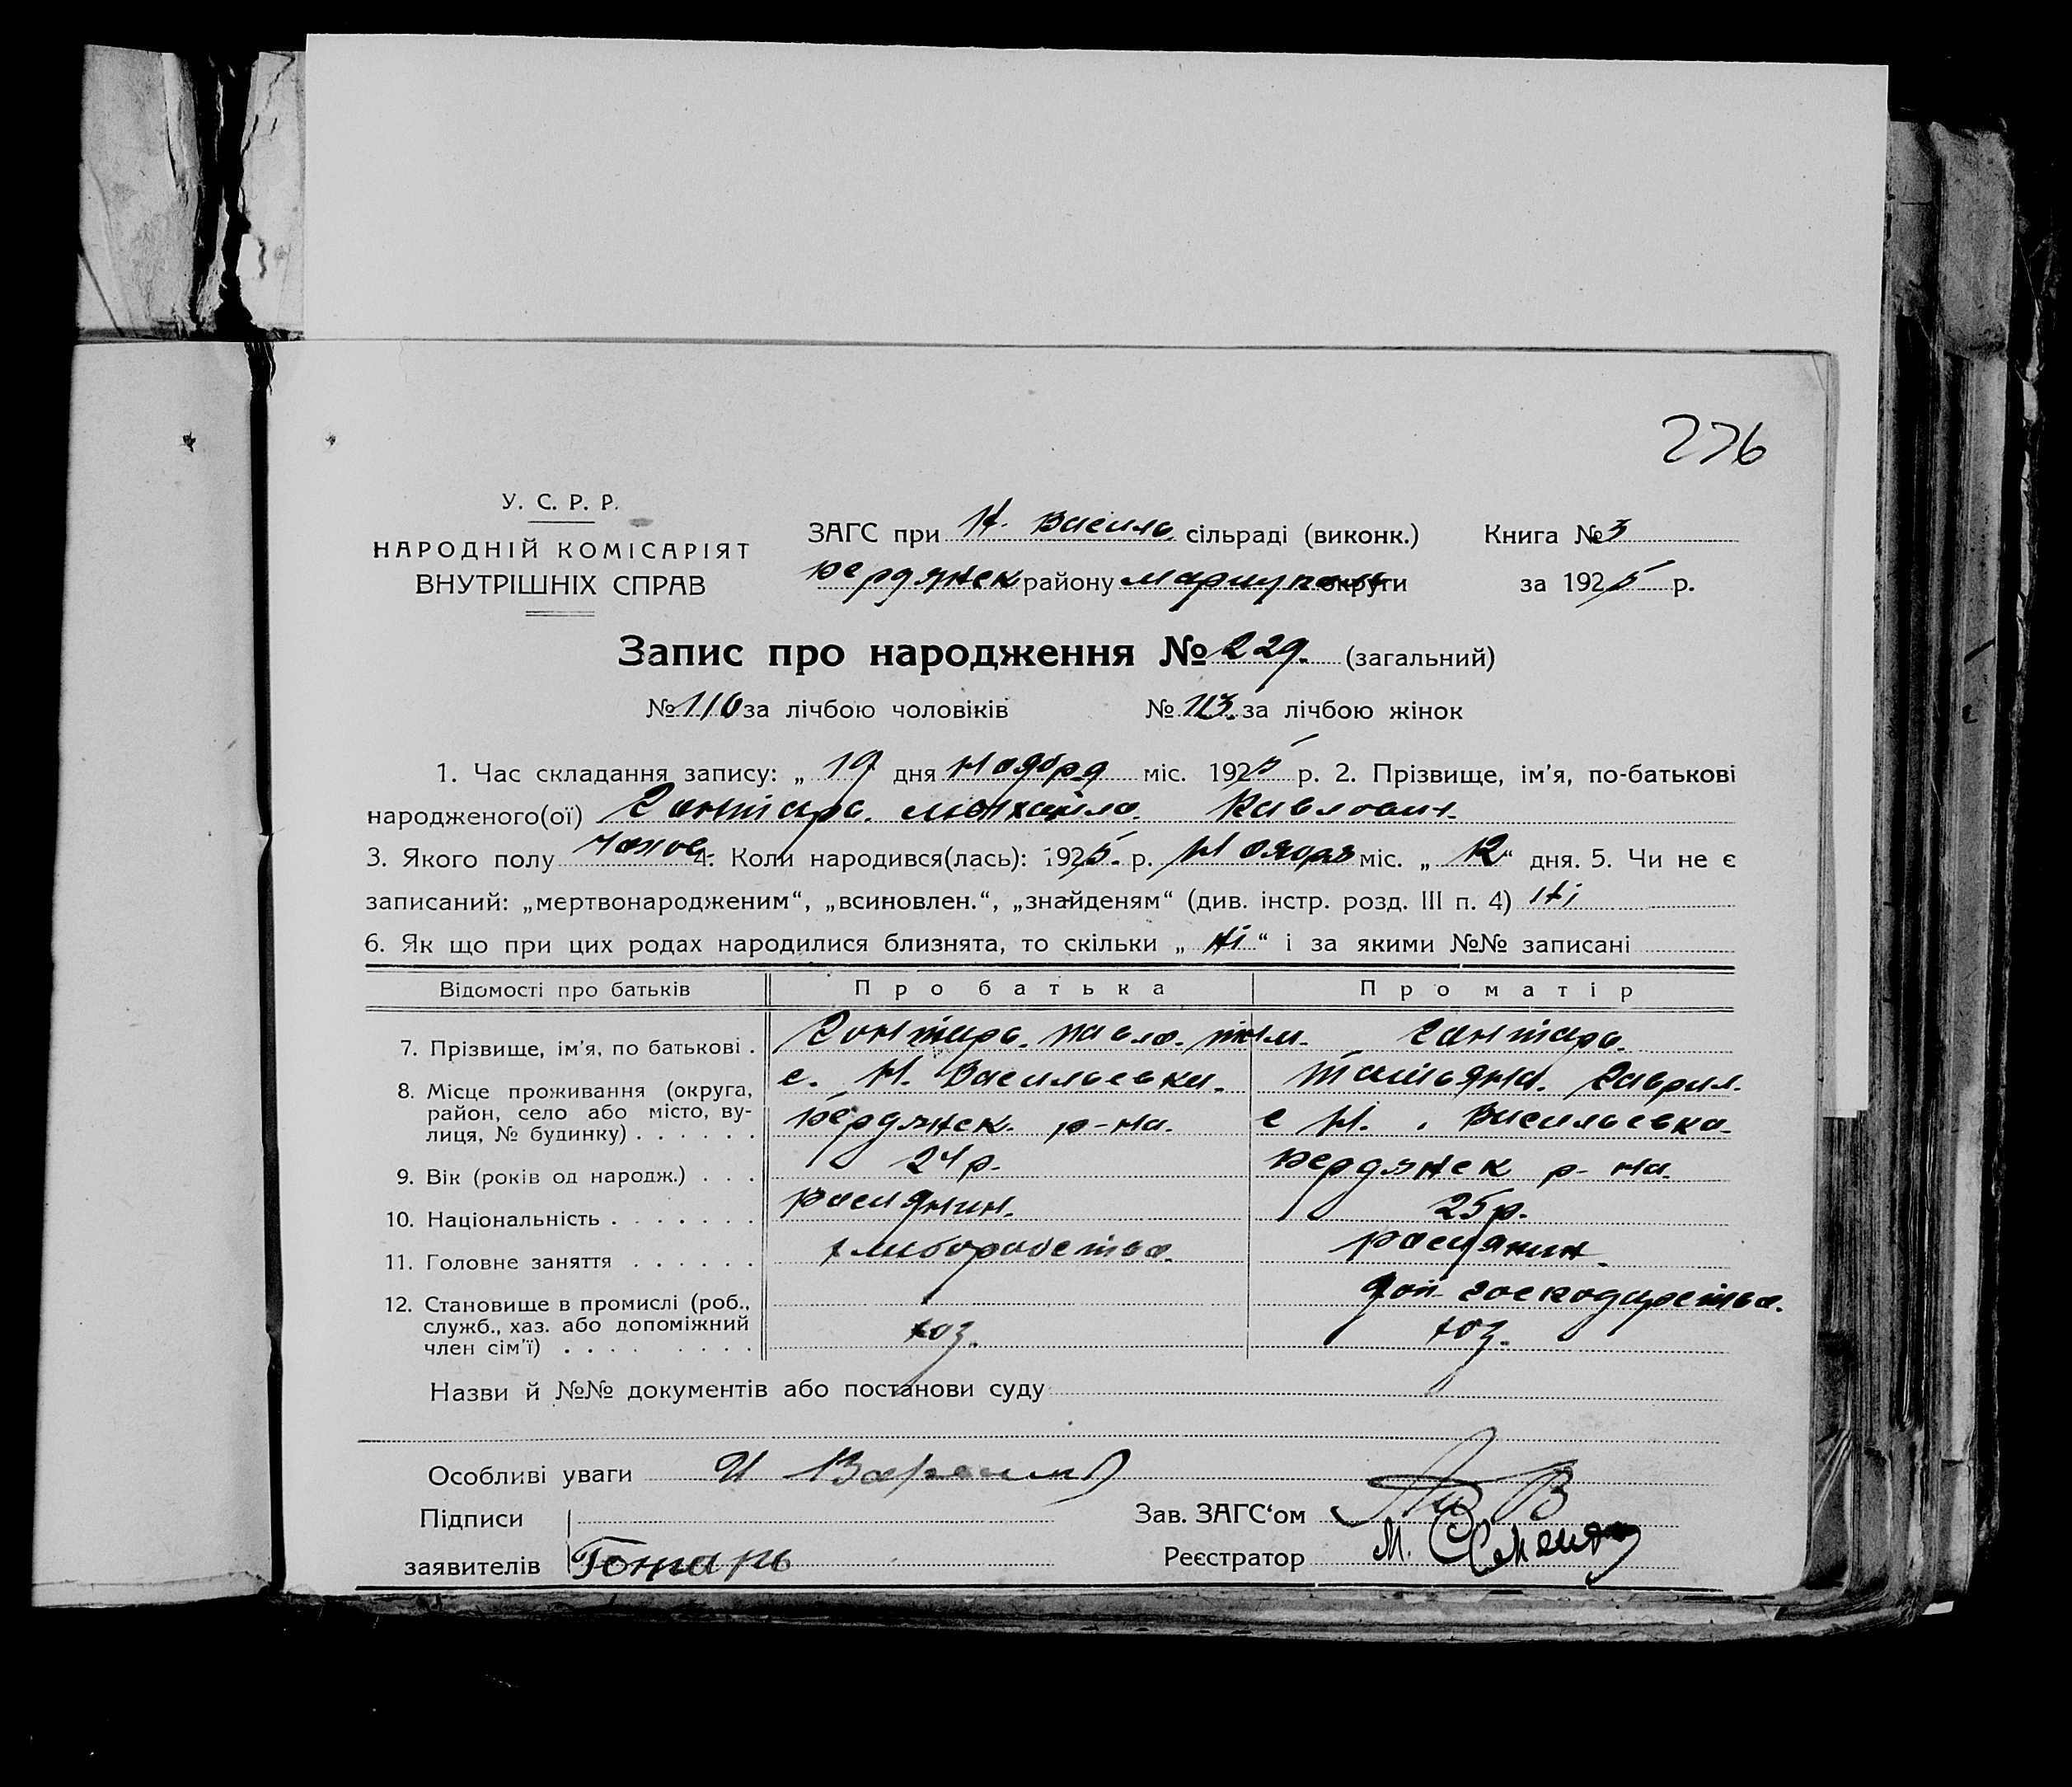 276
У. С. Р. Р.
НАРОДНІЙ КОМІСАРІЯТ
ВНУТРІШНІХ СПРАВ
ЗАГС при Н. Василь сільраді (виконк.) Книга № 3
Бердянск району Мариуполь округи за 1925 р.
Запис про народження № 229. (загальний)
№ 116 за лічбою чоловіків № 113. за лічбою жінок
1. Час складання запису: „ 19 дня Ноября міс. 1925 р. 2. Прізвище, ім’я, по-батькові
народженого(ої) Гонтарь. Михайло. Павлович.
3. Якого полу 4. Коли народився(лась): 1925. р. Ноября міс. „ 12 “ дня. 5. Чи не є
записаний: „мертвонародженим“, „всиновлен.“, „знайденям“ (див. інстр. розд. III п. 4) Ні
6. Як що при цих родах народилися близнята, то скільки „ Ні “ і за якими №№ записані
Відомості про батьків Про батька Про матір
7. Прізвище, ім’я, по батькові . Гонтарь. Павло. Гонтарь.
8. Місце проживання (округа, с. Н. Васильевка. Татьяна. Гаврил.
район, село або місто, ву-
лиця, № будинку) . . . . . . Бердянск. р-на. с Н. Васильевка.
9. Вік (років од народж.) . . . 24 р. Бердянск р-на.
10. Національність . . . . . . . росиянин. 25 р.
11. Головне заняття . . . . . . хлиборобства. росиянин.
12. Становище в промислі (роб., дом госкодарства.
служб., хаз. або допоміжний хоз. хоз.
член сім’ї) . . . . . . . .
Назви й №№ документів або постанови суду
Особливі уваги
Підписи Зав. ЗАГС‘ом
заявителів Гонтарь Реєстратор М.